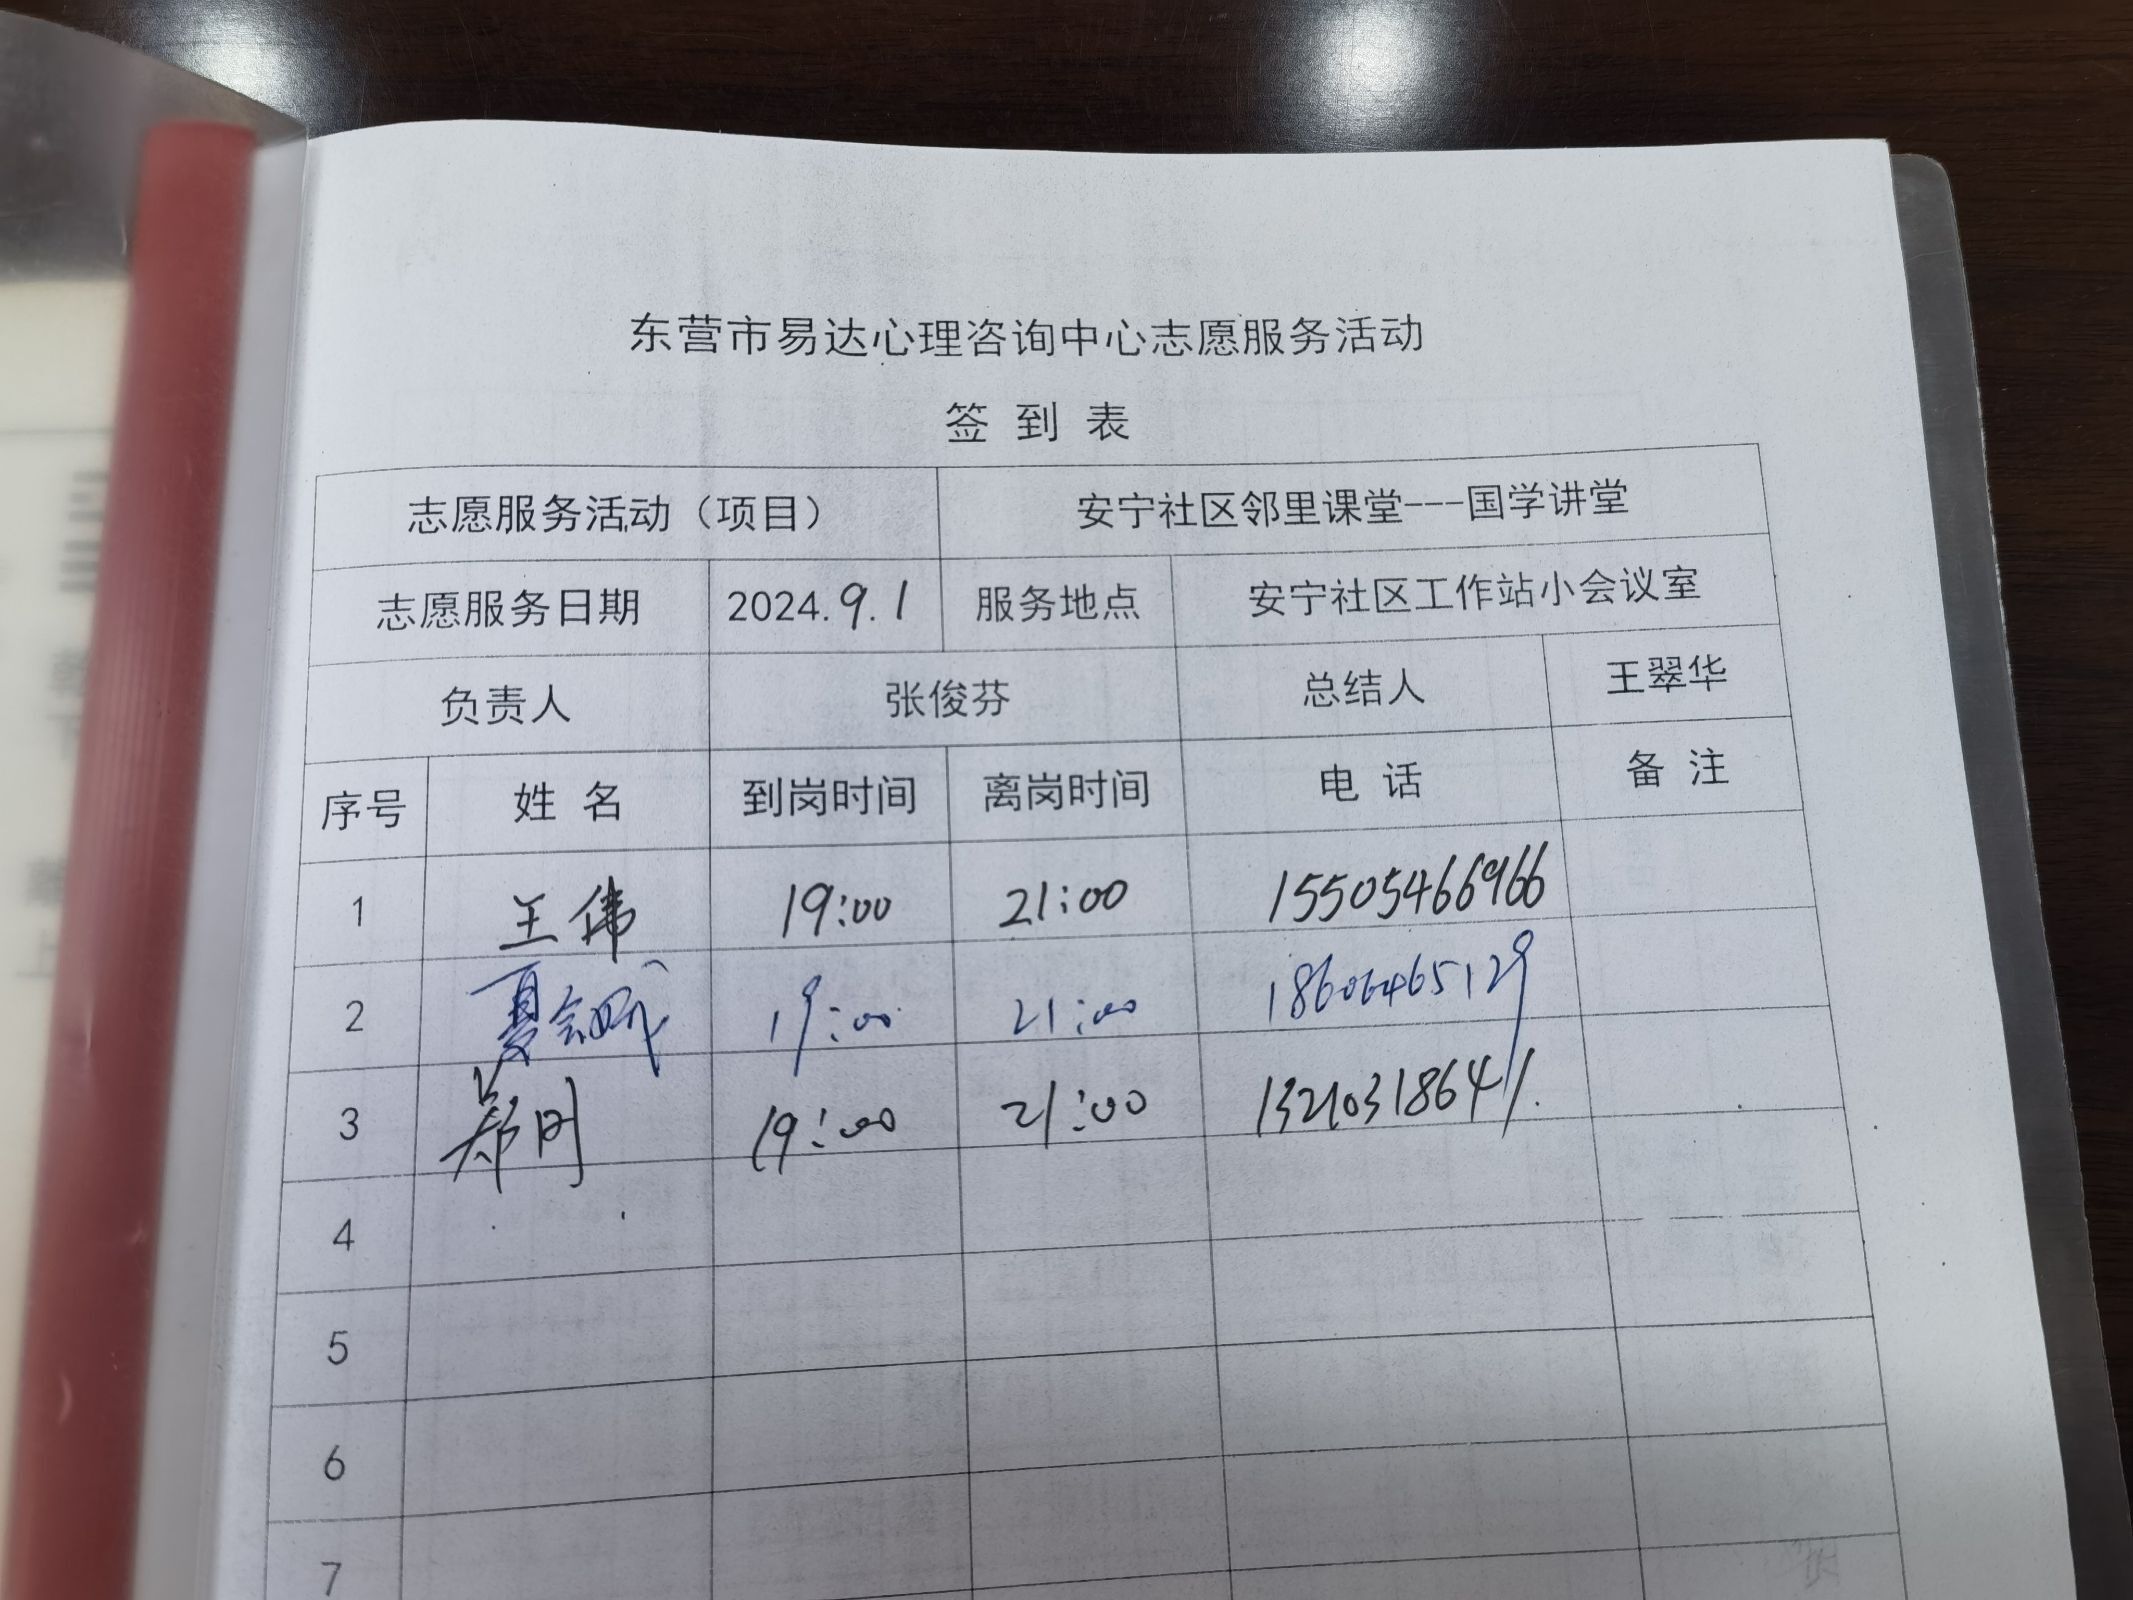 东营市易达心理咨询中心志愿服务活动
签 到 表
志愿服务活动（项目） 安宁社区邻里课堂---国学讲堂
志愿服务日期 2024.9.1 服务地点 安宁社区工作站小会议室
负责人 张俊芬 总结人 王翠华
序号 姓 名 到岗时间 离岗时间 电 话 备 注
1 王伟 19:00 21:00 15505466966
2 夏 19:00 21:00 18606465129
3 郑刚 19:00 21:00 13210318641
4
5
6
7